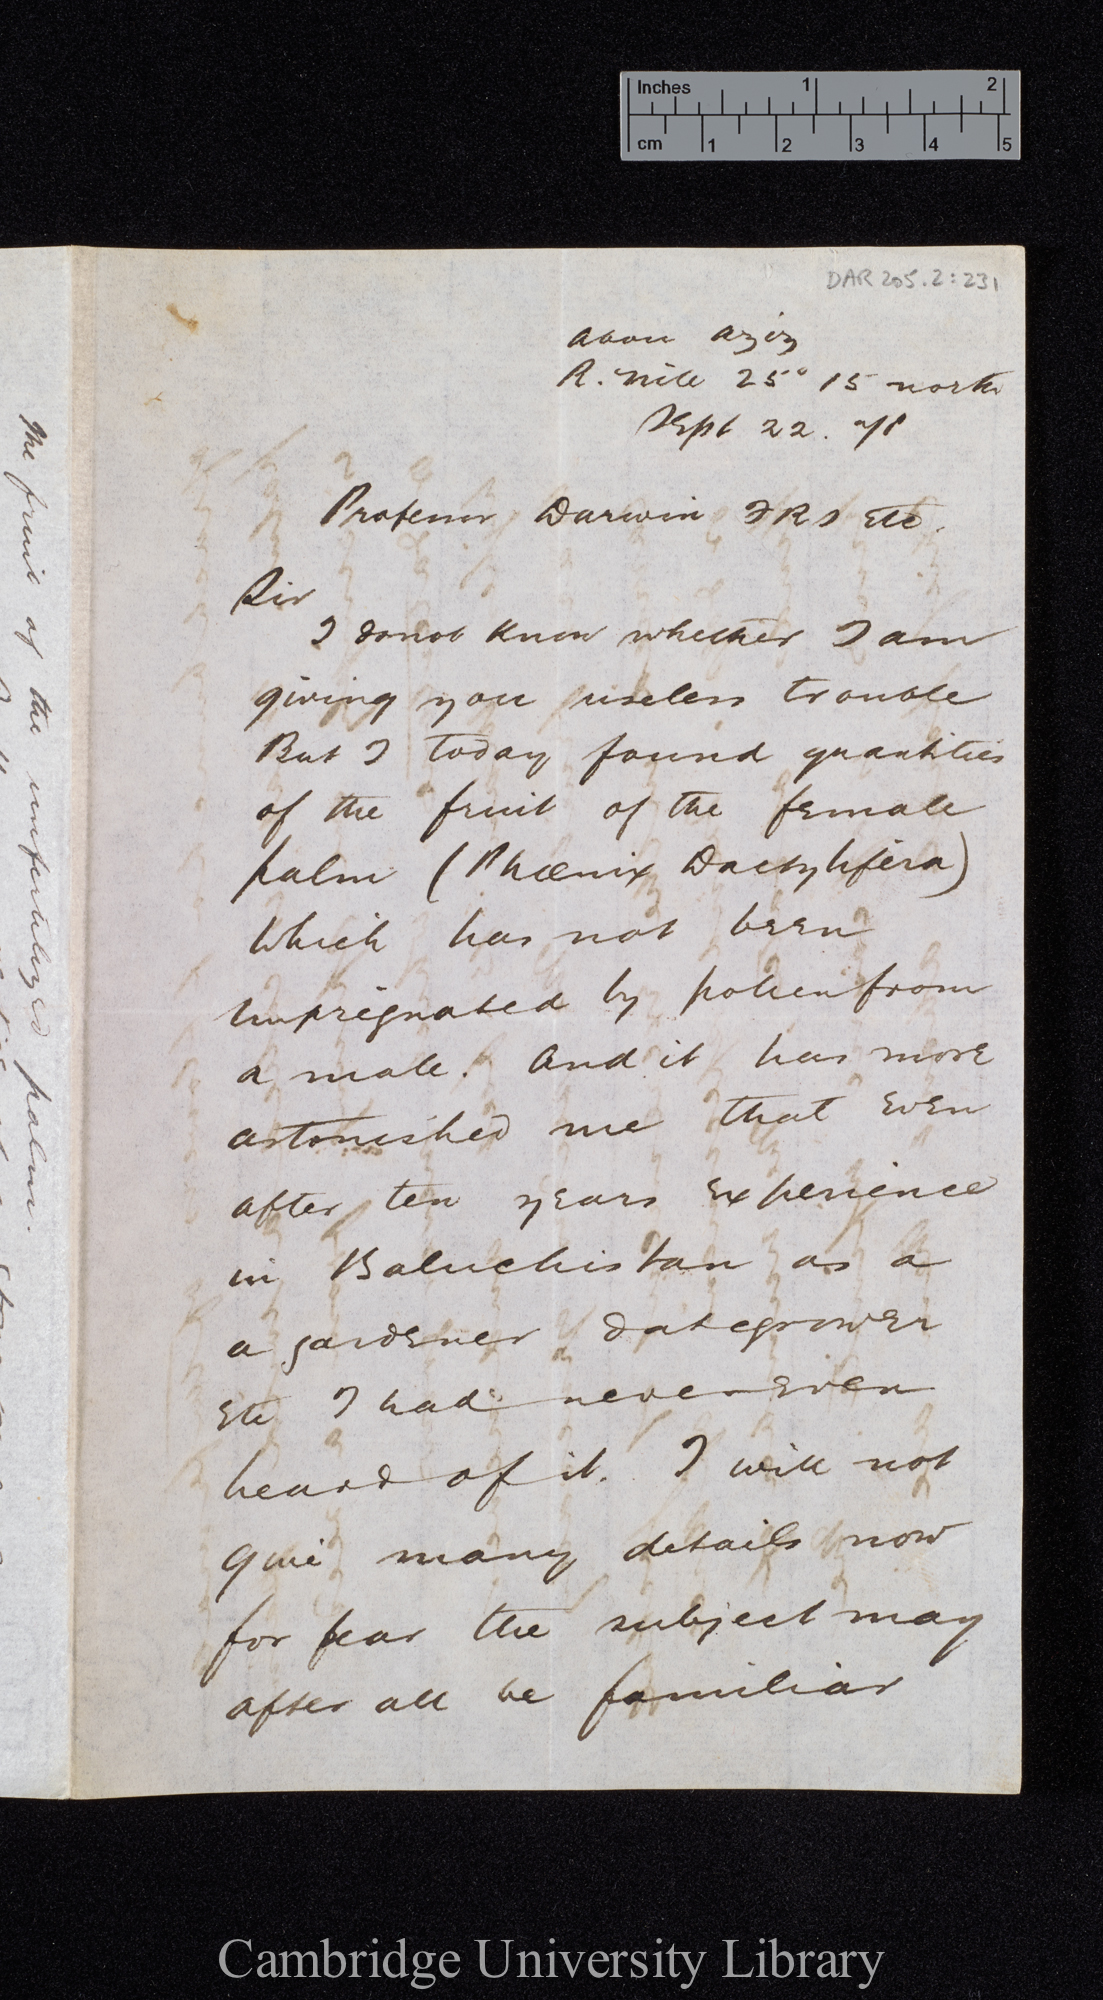 Inches 1 2
cm 1 2 3 4 5
DAR 205.2:231
Abou Aziz
R. Nile 25° 15 north
Sept 22. 78
Professor Darwin FRS Etc.
Sir
I do not know whether I am
giving you useless trouble
But I today found quantities
of the fruit of the female
palm (Phœnix Dactylifera)
which has not been
impregnated by pollen from
a male. And it has more
astonished me that even
after ten years experience
in Baluchistan as a
a gardener dategrower
Etc I had never even
heard of it. I will not
give many details now
for fear the subject may
after all be familiar
The fruit of the unfertilized palm.
Cambridge University Library